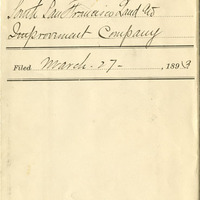 South San Francisco Land and
Improvement Company
Filed March - 27 - , 1899